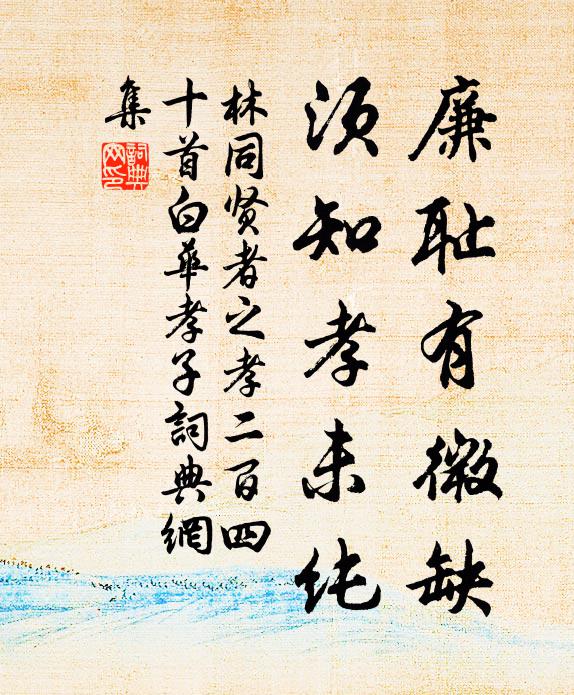 廉耻有微缺
须知孝未纯
林同贤者之孝二百四
十首白华孝子詞典網
集
詞典網印